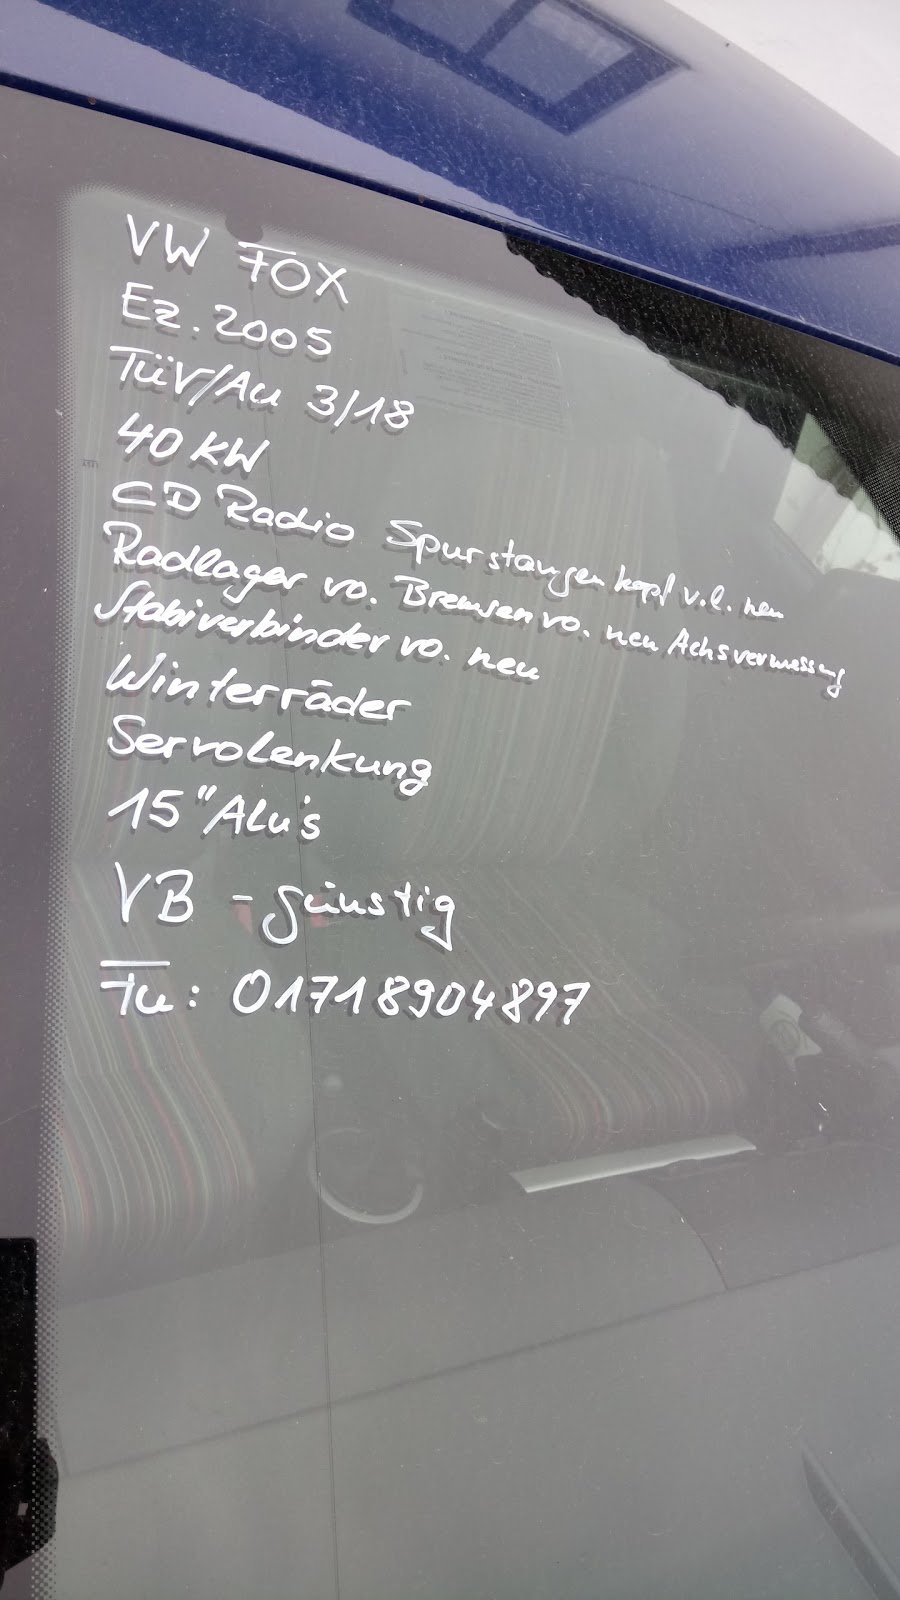 VW FOX
EZ. 2005
TüV/Au 3/18
40 KW
CD Radio Spurstangenkopf v.l. neu
Radlager vo. Bremsen vo. neu Achsvermessung
Stabiverbinder vo. neu
Winterräder
Servolenkung
15" Alu's
VB - günstig
: 01718904897